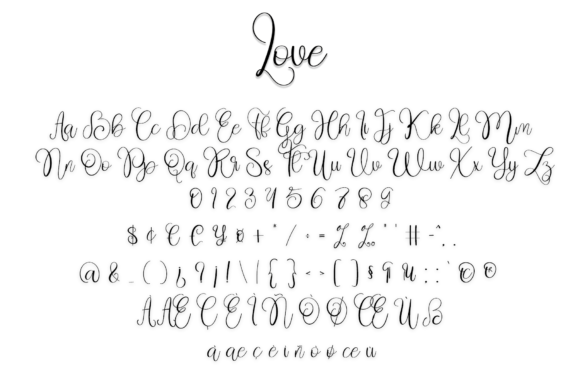 Love
Aa Bb Cc Dd Ee Ff Gg Hh Ii Jj Kk Ll Mm
Nn Oo Pp Qq Rr Ss Tt Uu Vv Ww Xx Yy Zz
0 1 2 3 4 5 6 7 8 9
$ ¢ # - ^ . .
@ & _ ( ) ¡ ? ¿ ! \ | { } < > [ ] § ¶ µ : ; ` © ®
À Æ Ç È Ì Ñ Ò Ø Œ Ù ß
à æ ç è ì ñ ò ø œ ù